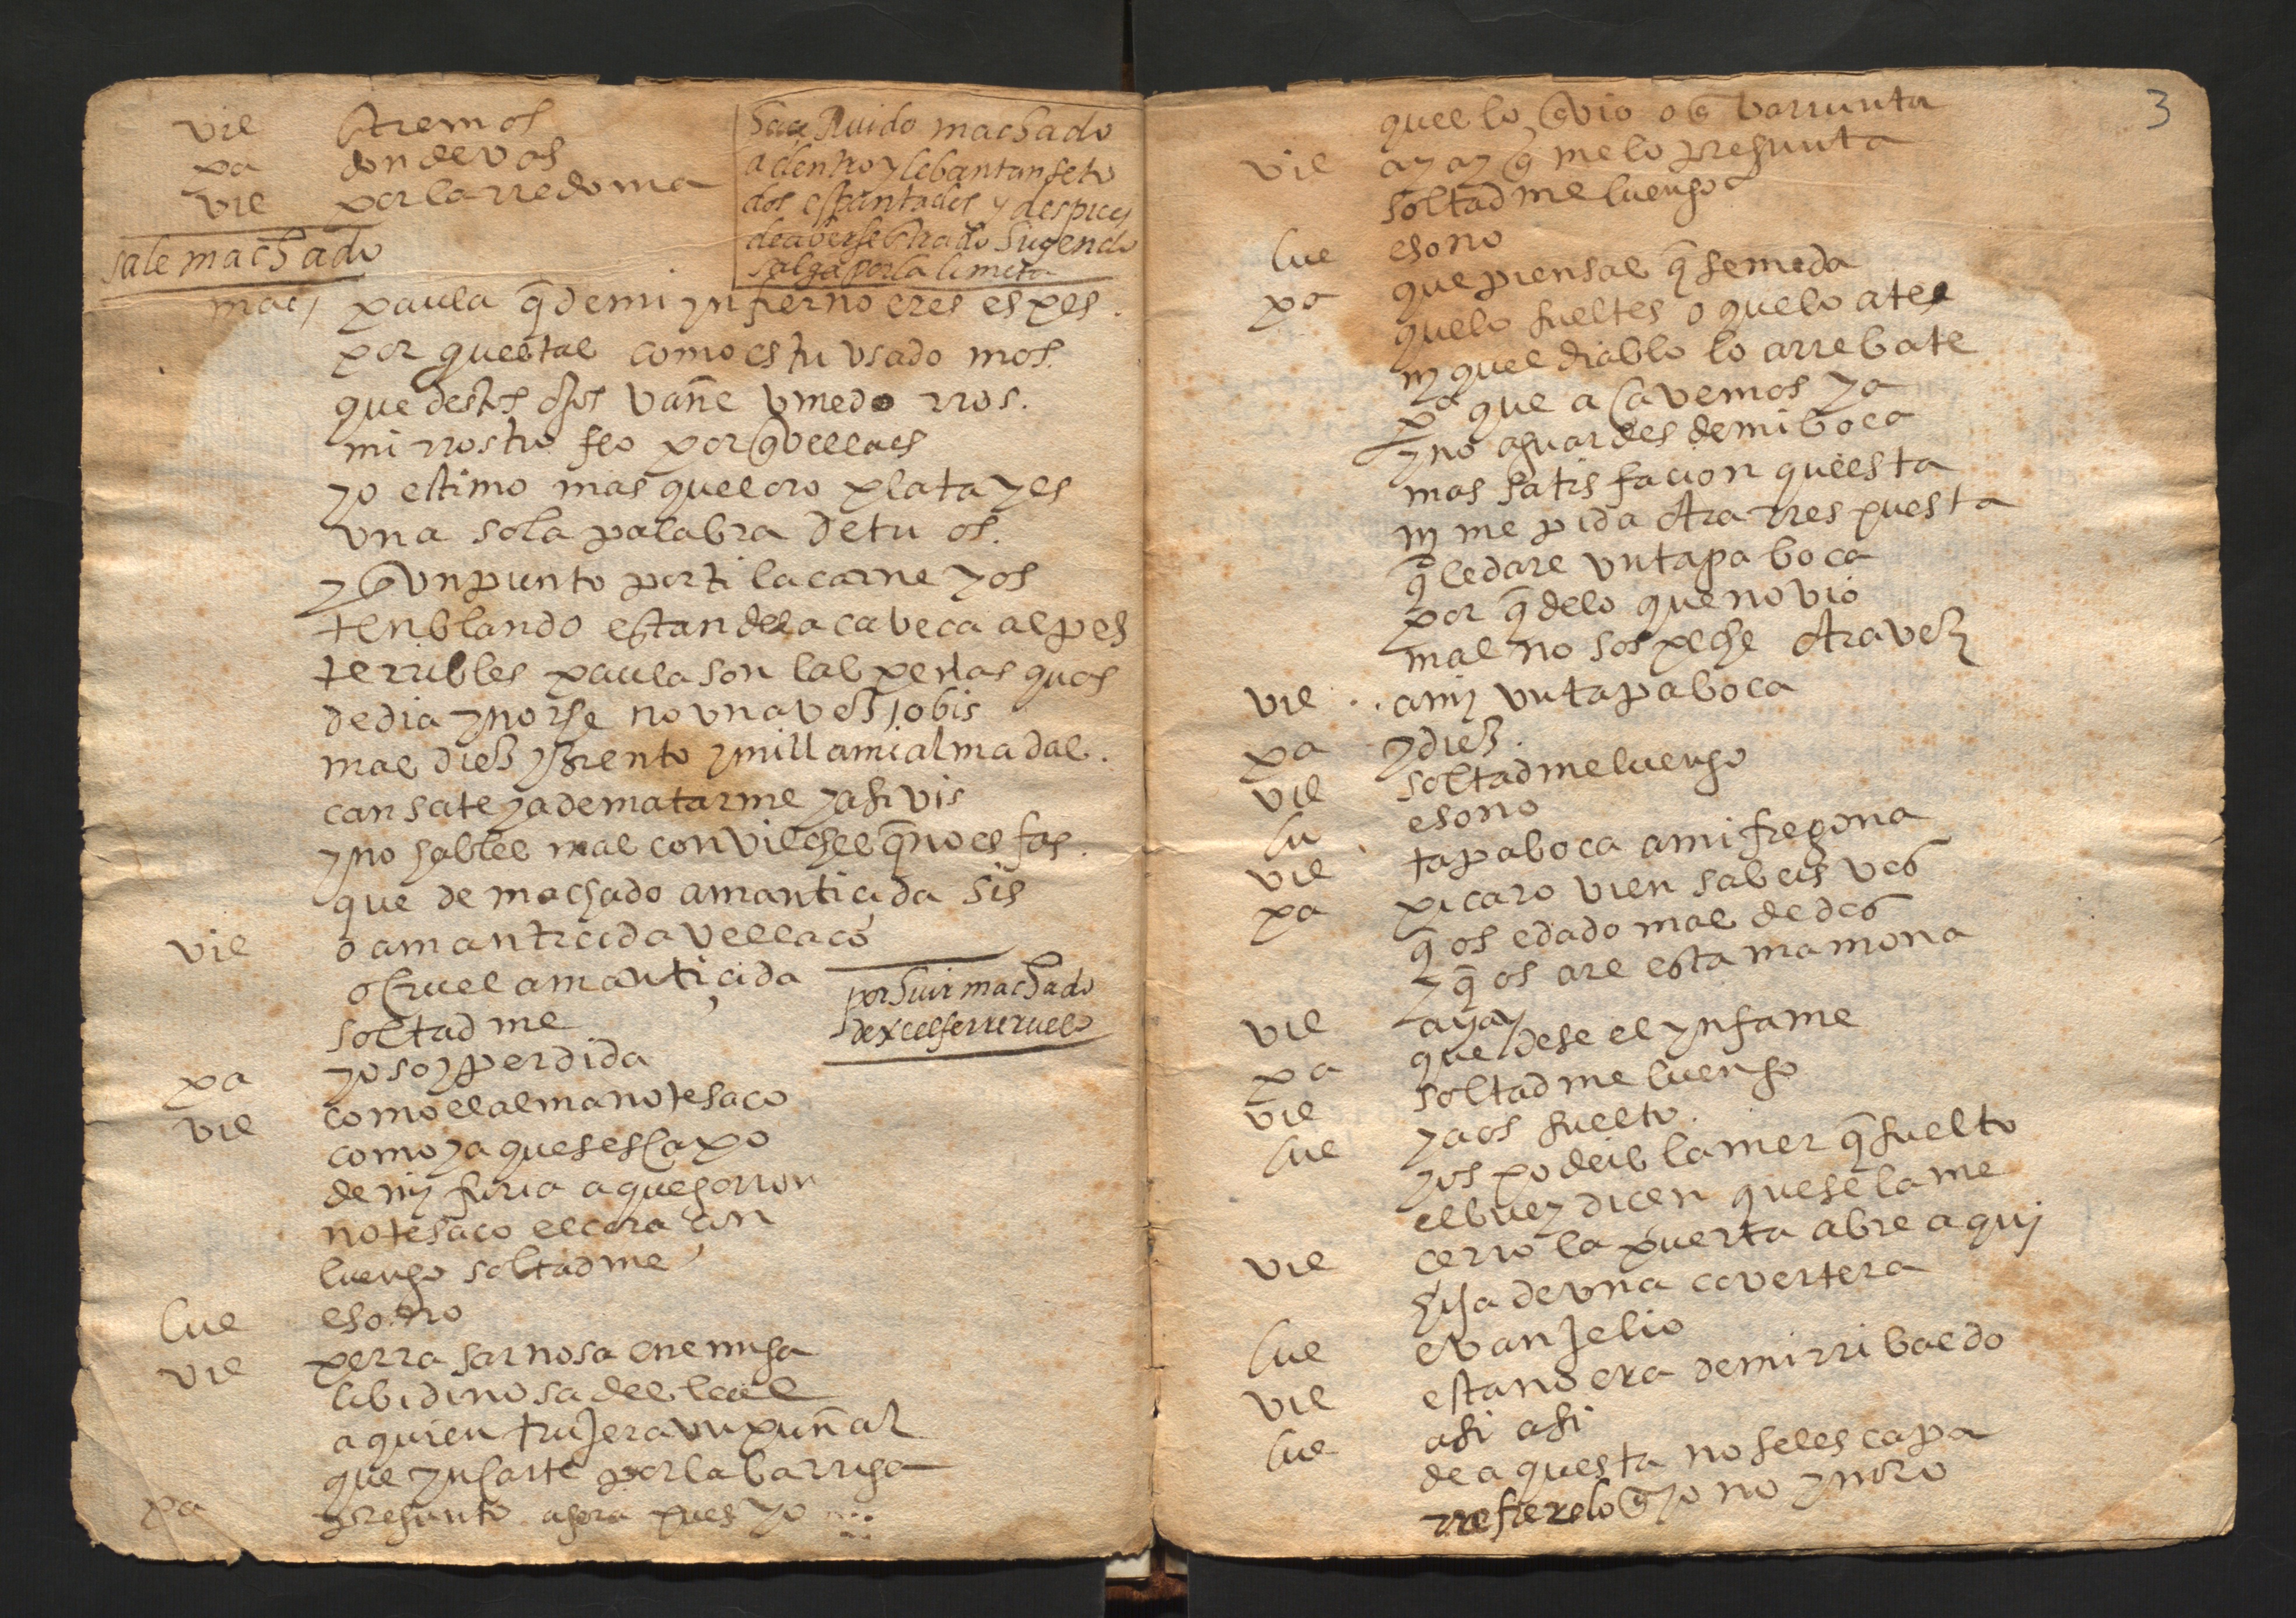 vil etremos
pa donde vas
vil por la rredoma
haça Ruido machado
adentro y lebantanse to
dos espantados y despues
de aberse entrado huyendo
salga por la limeta
sale machado
mac/ paula q̃ de mi ynfierno eres es pes.
por questas como es tu usado mos.
que destos ojos vañe vmedo rros.
mi rrostro feo porq̃ vellaes
yo estimo mas quel oro plata yes
vna sola palabra de tu os.
y en vn punto por ti la carne y os
tenblando estan de la caveca al pes
terribles paula son las penas quas
de dia y noche no vna vez jobis
mas diez y ziento y mill a mi alma das.
cansate ya de matarme ya si vis
y no hables mas con vilches q̃ no es fas.
que de machado amanticida sis
vil o amanticida vellaco
o cruel amanticida
soltadme
por huir machado
dexe el ferreruelo
pa yo soy perdida
vil como el alma no te saco
como ya que sescapo
de mj furia aquese
no te saco el coraçon
luengo soltadme
lue eso no
vil perra sarnosa enemiga
libidinosa desleal
a quien trujera vn puñal
que yncarte por la barriga
pa pregunto agora pues yo
3
quees lo q̃ vio o q̃ barrunta
vil ay ay q̃ me lo pregunta
soltadme luengo
lue eso no
pa que piensas q̃ se me da
que lo sueltes o que lo ates
nj quel diablo lo arrebate
pa que acavemos ya
y no aguardes de mi boca
mas satisfacion questa
nj me pida otra rrespuesta
q̃ le dare vn tapa boca
por q̃ de lo que no vio
mas no sospeche otra vez
vil a mj vn tapaboca
pa y diez.
vil soltadme luengo
lu eso no
vil tapaboca a mi fregona
pa picaro vien sabeis vos
q̃ os e dado mas de dos
y q̃ os are esta mamona
vil ay ay
pa quexese el ynfame
vil soltadme luengo
lue ya os suelto.
y os podeis lamer q̃ suelto
el buey dicen que se lame
vil cerro la puerta abre aquj
hija de vna covertera
lue evanjelio
vil esta no era de mi rribaldo
lue asi asi
de aquesta no se les capa
rrefierelo q̃ yo no ynoro